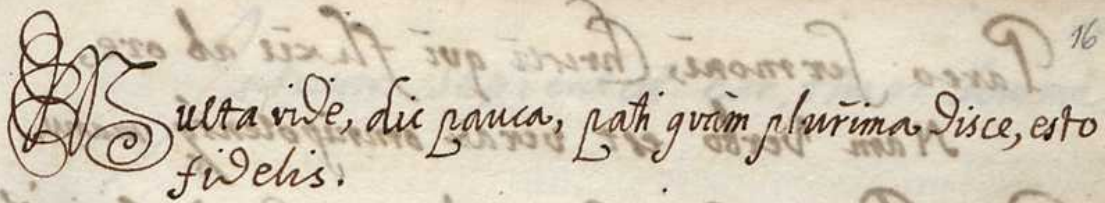 16
Multa vide, dic pauca, pati quàm plurima disce, esto
fidelis.